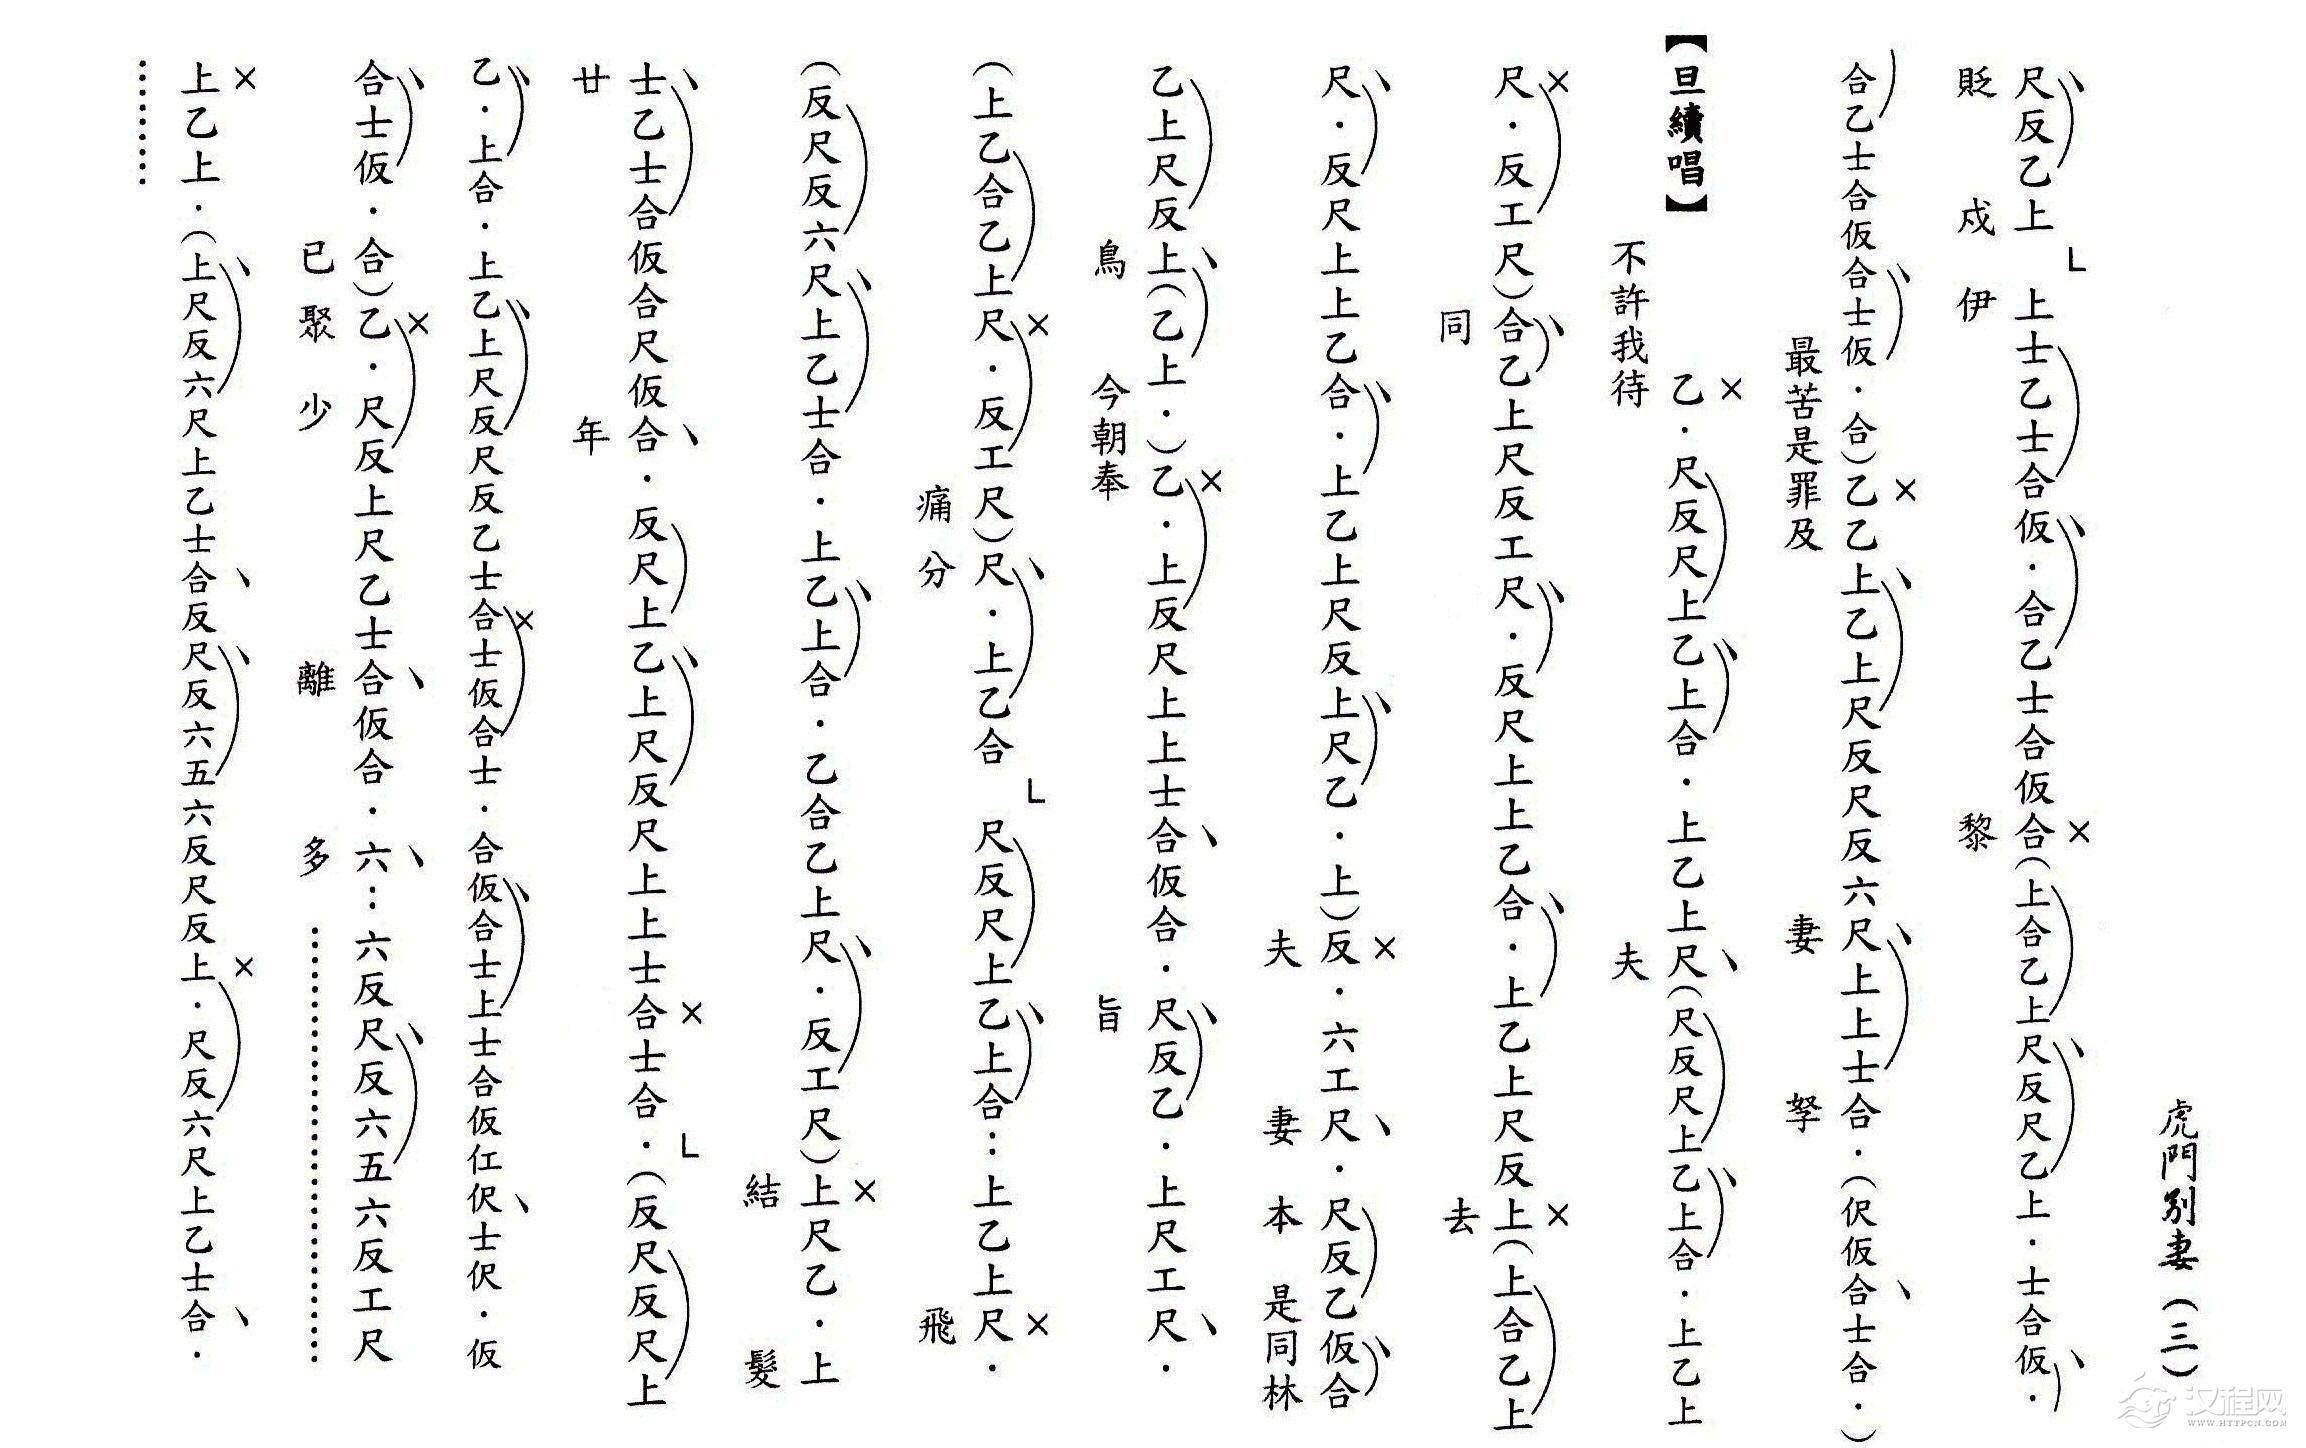 虎門別妻（三）
尺反乙上　上士乙士合仮．合乙士合仮合（上合乙上尺反尺乙上．士合仮．
貶戍伊黎
合乙士合仮合士仮．合）乙乙上乙上尺反尺反六尺上上士合．（伬仮合士合．）
最苦是罪及妻孥
【旦續唱】　乙．尺反尺上乙上合．上乙上尺（尺反尺上乙上合．上乙上
不許我待夫
尺．反工尺）合乙上尺反工尺．反尺上上乙合．上乙上尺反上（上合乙上
同去
尺．反尺上上乙合．上乙上尺反上尺乙．上）反．六工尺．尺反乙仮合
夫妻本是同林
乙上尺反上（乙上．）乙．上反尺上上士合仮合．尺反乙．上尺工尺．
鳥今朝奉旨
（上乙合乙上尺．反工尺）尺．上乙合　尺反尺上乙上合：上乙上尺．
痛分飛
（反尺反六尺上乙士合．上乙上合．乙合乙上尺．反工尺）上尺乙．上
結髮
士乙士合仮合尺仮合．反尺上乙上尺反尺上上士合士合．（反尺反尺上
廿年
乙．上合．上乙上尺反尺反乙士合士仮合士．合仮合士上士合仮仜伬士伬．仮
合士仮．合）乙．尺反上尺乙士合仮合．六：六反尺反六五六反工尺
已聚少離多………………
上乙上．（上尺反六尺上乙士合反尺反六五六反尺反上．尺反六尺上乙士合．
………
汉程网
WWW.HTTPCN.COM